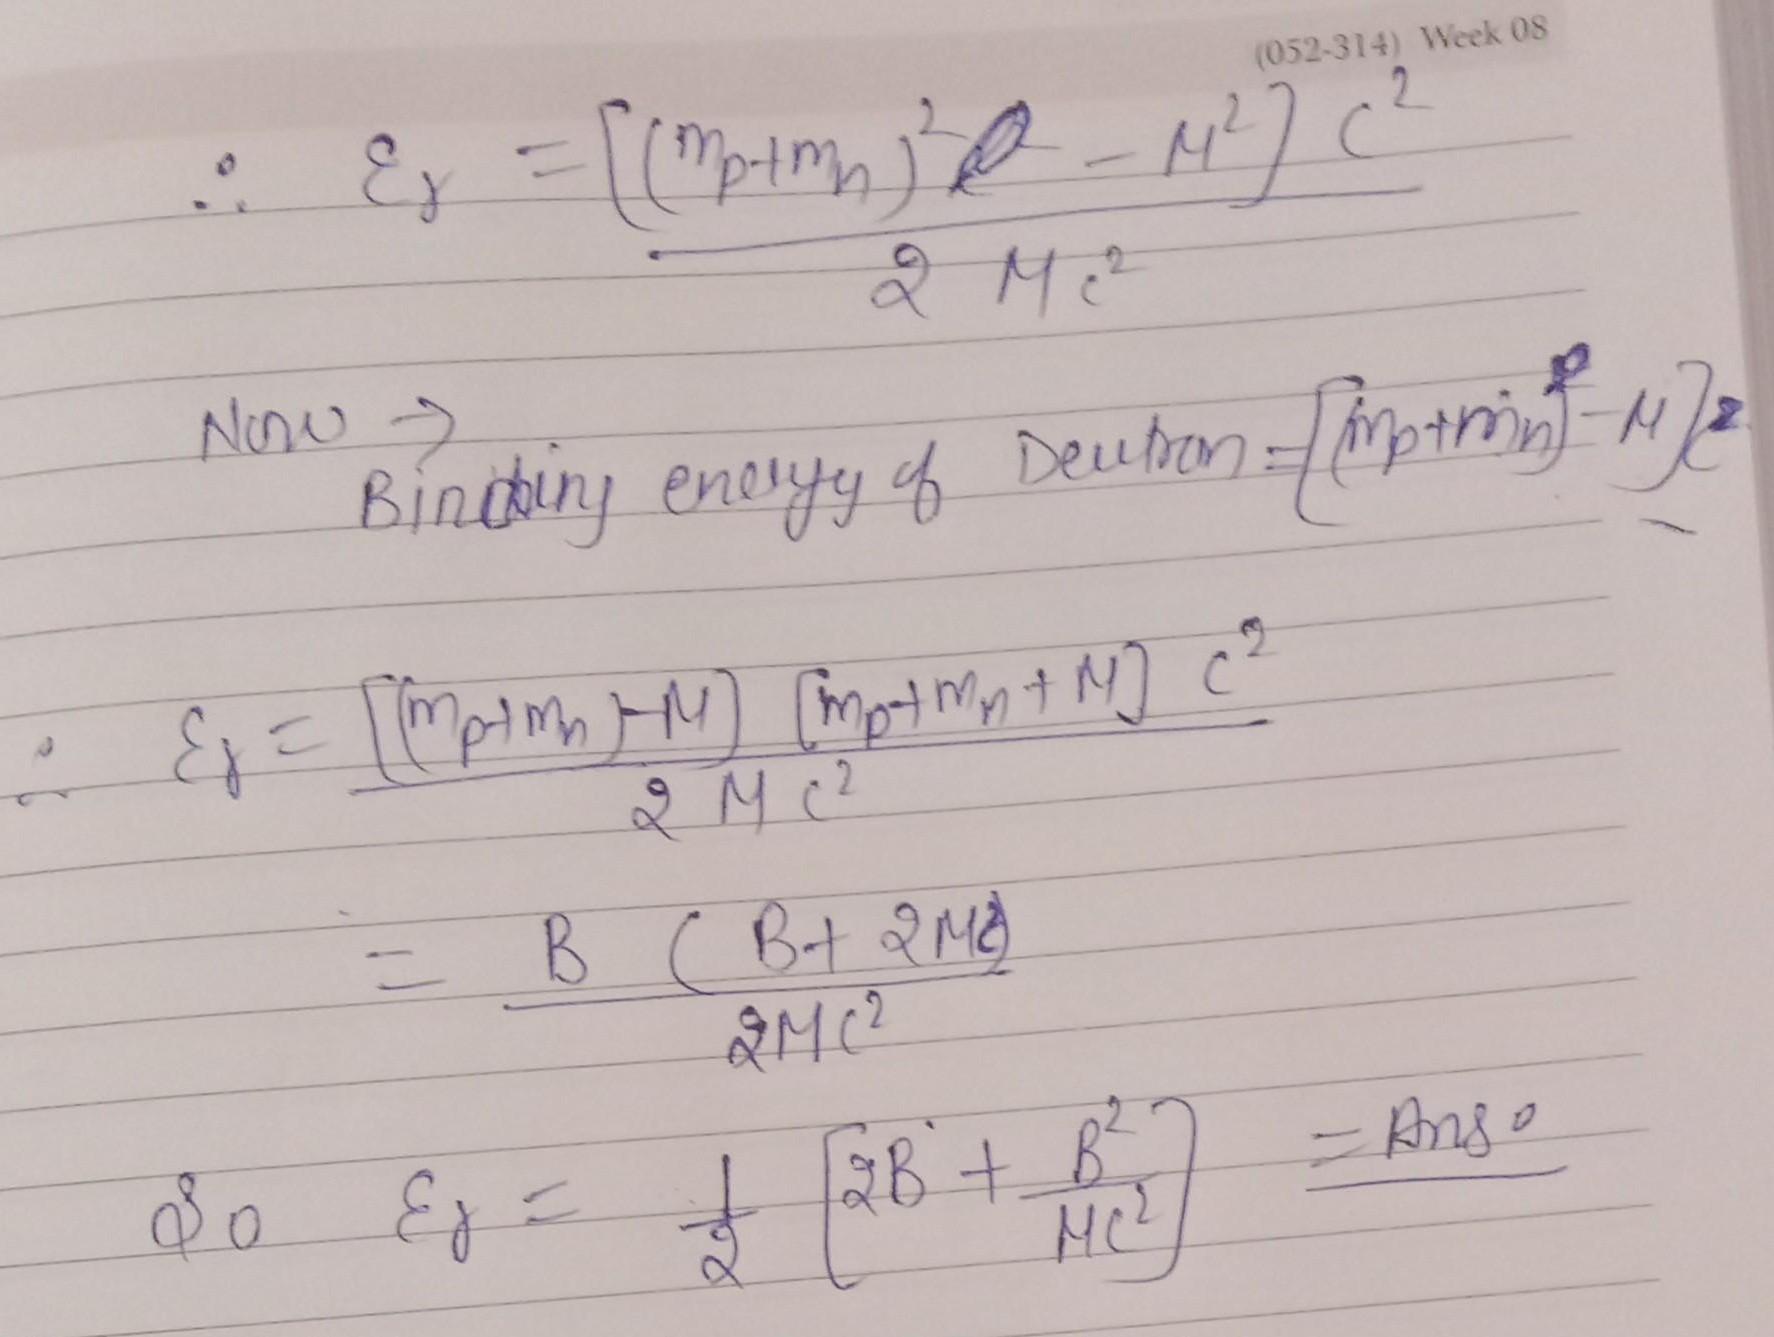 (052-314) Week 08
∴ Ɛγ = [(mp+mn)² - M²] c²
2 Mc²
Now →
Binding energy of Deutron = [(mp+mn) - M]c²
∴ Ɛγ = [(mp+mn)-M] [mp+mn+M] c²
2 Mc²
= B ( B+ 2Mc²)
2Mc²
So Ɛγ = 1/2 [2B + B²/Mc²] = Ans.